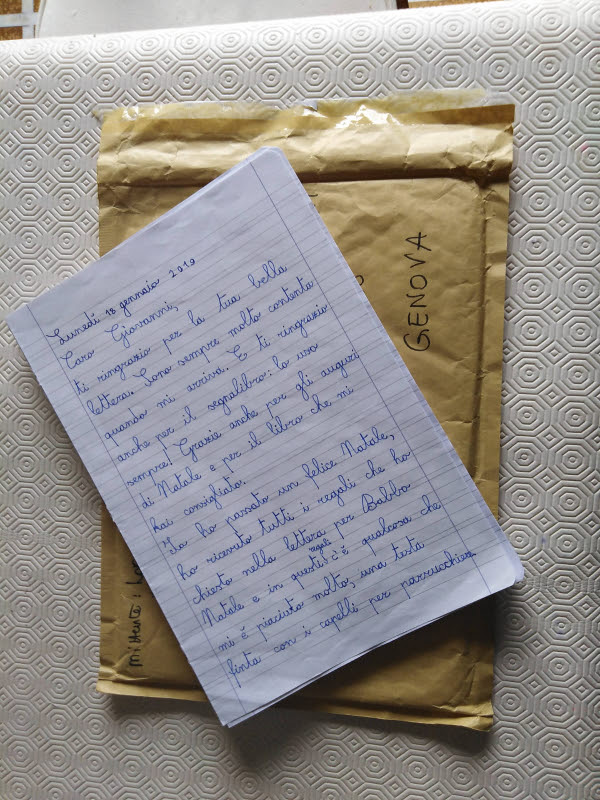 Lunedì 13 gennaio 2019
Caro Giovanni,
ti ringrazio per la tua bella
lettera. Sono sempre molto contenta
quando mi arriva. E ti ringrazio
anche per il segnalibro: lo uso
sempre! Grazie anche per gli auguri
di Natale e per il libro che mi
hai consigliato.
Io ho passato un felice Natale,
ho ricevuto tutti i regali che ho
chiesto nella lettera per Babbo
Natale e in questi regali c'è qualcosa che
mi è piaciuto molto, una testa
finta con i capelli per parrucchiera
GENOVA
Mittente: